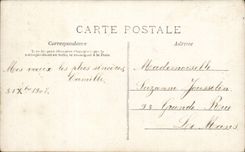 CARTE POSTALE
Correspondance
Adresse
Mes vœux les plus sincères
Camille
31 Xbre 1908.
Mademoiselle
Suzanne Jousselin
93 Grande Rue
Le Mans